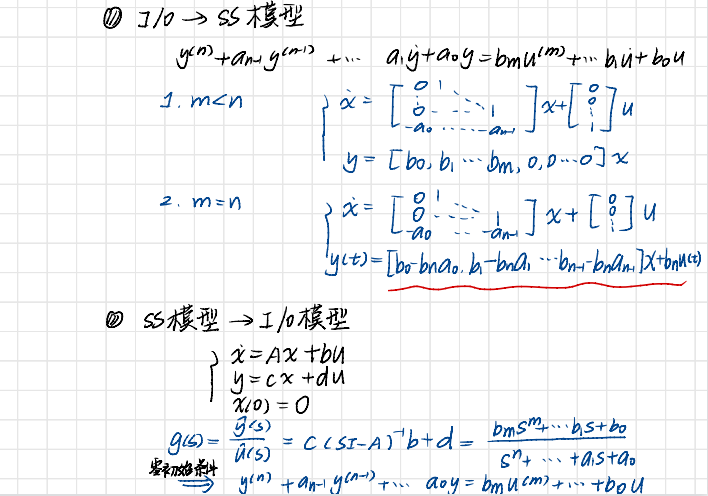 ① I/O → SS 模型
y⁽ⁿ⁾ + aₙ₋₁ y⁽ⁿ⁻¹⁾ + ⋯ a₁ẏ + a₀y = bₘu⁽ᵐ⁾ + ⋯ b₁u̇ + b₀u
1. m<n
{ ẋ = [ 0 1 ⋱ ; ⋮ ⋱ ; 0 ⋯ 1 ; -a₀ ⋯⋯ -aₙ₋₁ ] x + [ 0 0 ⋮ 1 ] u
y = [b₀, b₁ ⋯ bₘ, 0, 0 ⋯ 0] x
2. m=n
{ ẋ = [ 0 1 ⋱ ; 0 ⋯ 1 ; -a₀ ⋯ -aₙ₋₁ ] x + [ 0 0 ⋮ 1 ] u
y(t) = [b₀-bₙa₀, b₁-bₙa₁ ⋯ bₙ₋₁-bₙaₙ₋₁] x + bₙu(t)
② SS模型 → I/O模型
{ ẋ = Ax + bu
y = cx + du
x(0) = 0
g(s) = ŷ(s)/û(s) = C(SI-A)⁻¹b + d = (bₘsᵐ + ⋯ b₁s + b₀)/(sⁿ + ⋯ + a₁s + a₀)
零初始条件 ⇒ y⁽ⁿ⁾ + aₙ₋₁ y⁽ⁿ⁻¹⁾ + ⋯ a₀y = bₘu⁽ᵐ⁾ + ⋯ + b₀u